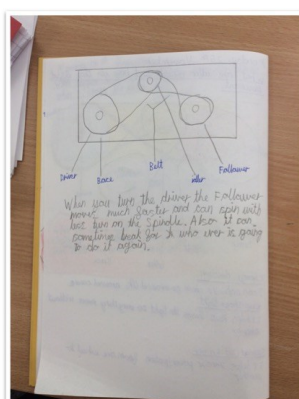 Driver Base Belt idler Follower
When you turn the driver the Follower
moves much faster and can spin with
turn on the spindle. Also it can
sometime break for who ever is going
to do it again.